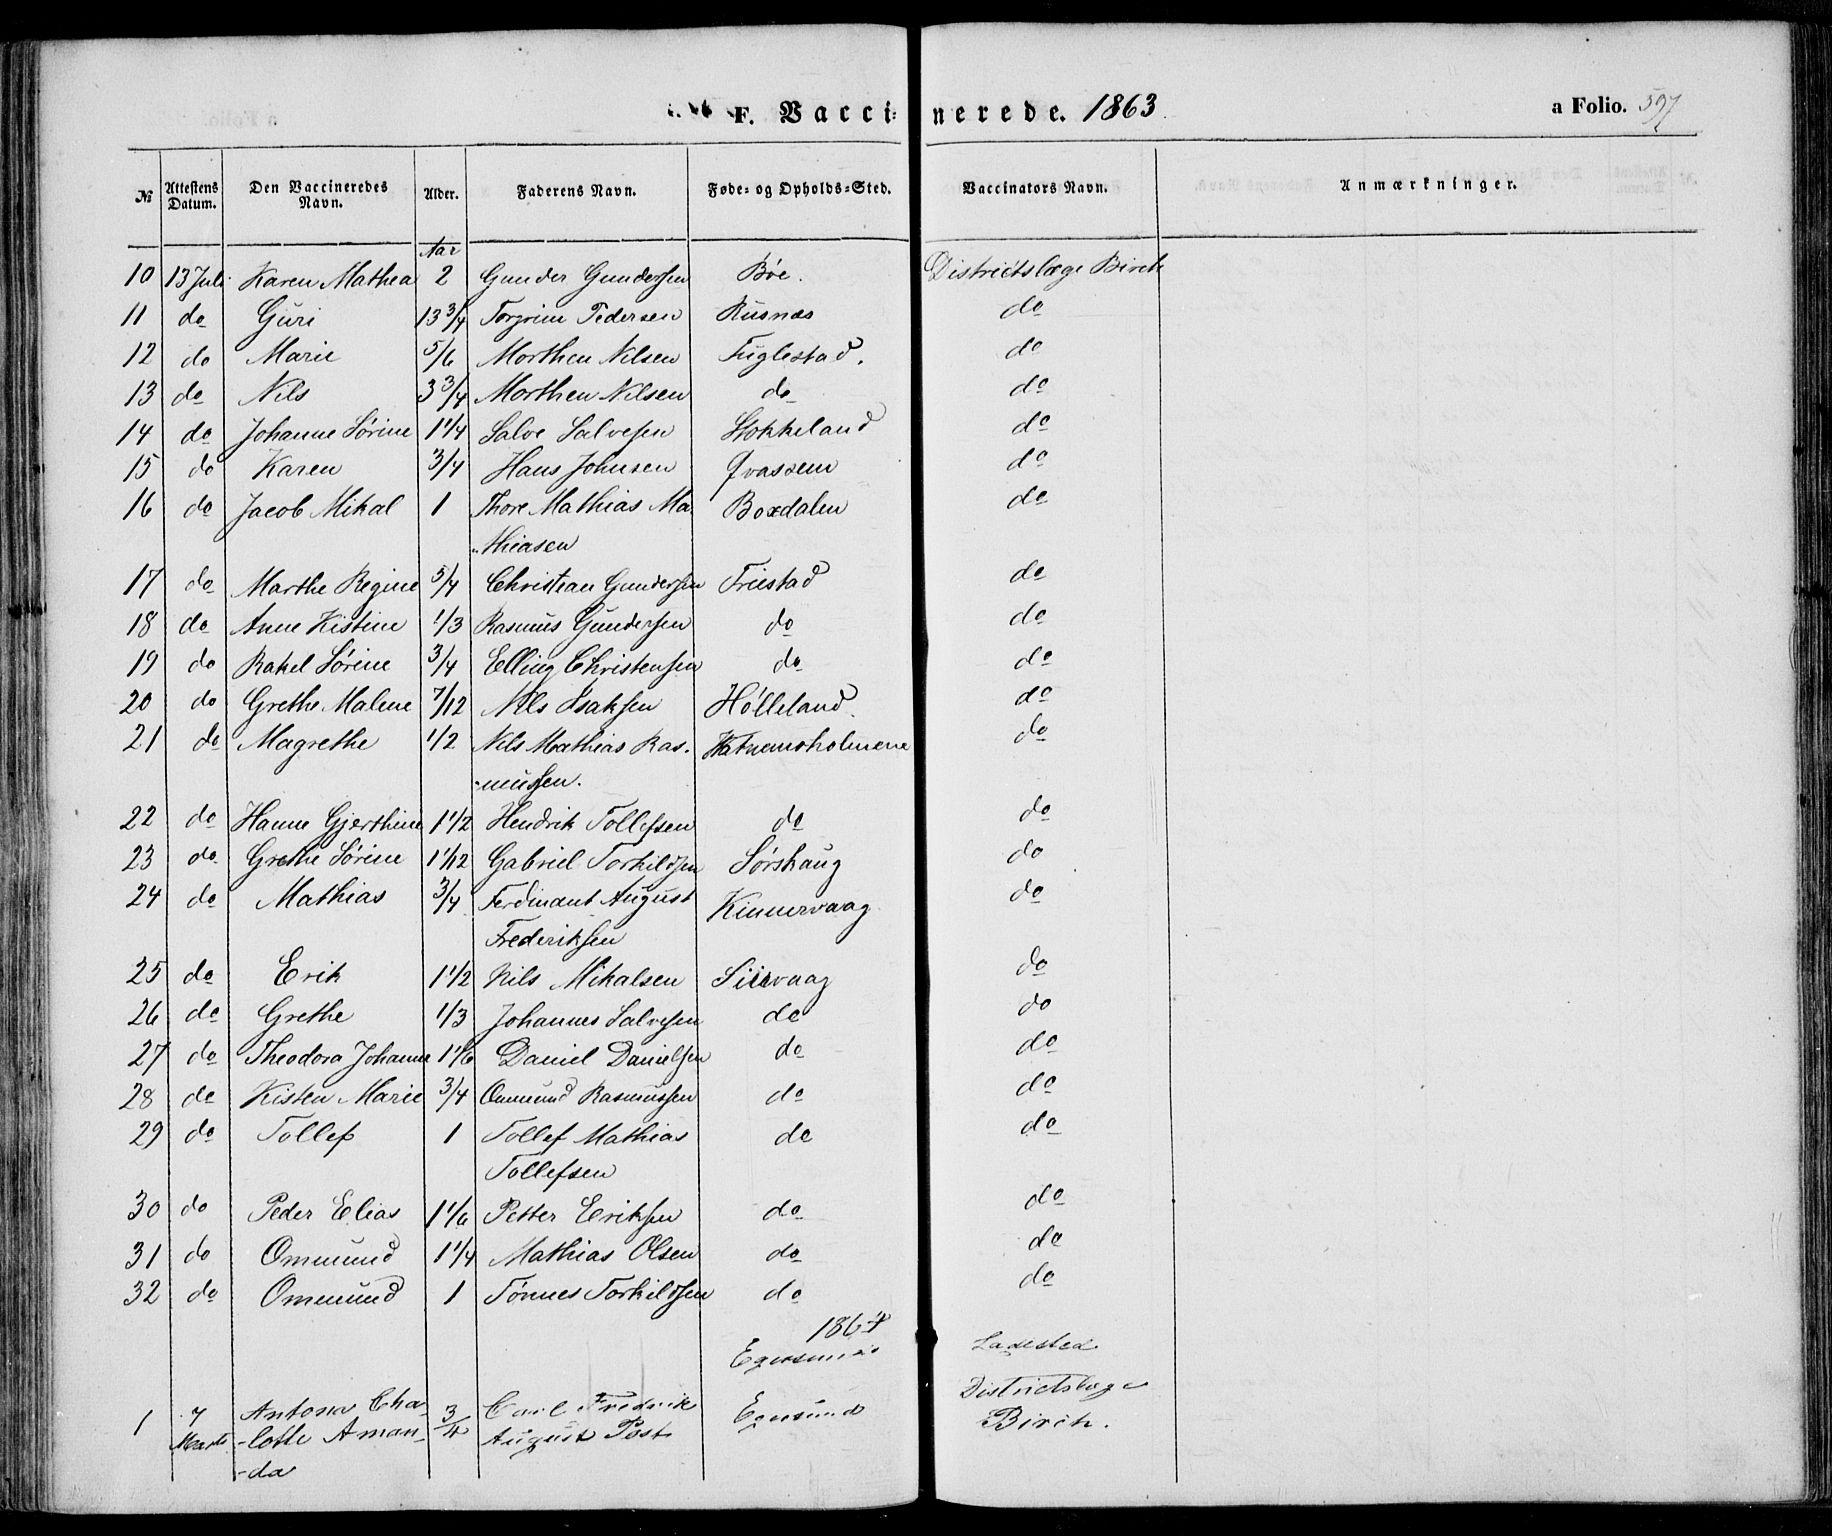 F. Vaccinerede. 1863. a Folio. 597
№ Attestens Datum. Den Vaccineredes Navn. Alder. Faderens Navn. Føde- og Opholds-Sted. Vaccinators Navn. Anmærkninger.
Aar
10 13 Juli Karen Mathea 2 Gunder Gundersen Bøe. Districtslæge Birch
11 do Guri 13 3/4 Torgrim Pedersen Rusnæs do
12 do Marie 5/6 Morthen Nilsen Fuglestad. do
13 do Nils 3 3/4 Morthen Nilsen do do
14 do Johanne Sørine 1 1/4 Salve Salvesen Stokkeland do
15 do Karen 3/4 Hans Johnsen do
16 do Jacob Mikal 1 Thore Mathias Ma Boxdalen do
thiasen
17 do Marthe Regine 5/4 Christian Gundersen Friestad do
18 do Anne Kistine 1/3 Rasmus Gundersen do do
19 do Rakel Sørine 3/4 Elling Christensen do do
20 do Grethe Malene 7/12 Nils Isaksen Hølleland. do
21 do Magrethe 1/2 Nils Mathias Ras- do
mussen.
22 do Hanne Gjerthine 1 1/2 Hendrik Tollefsen do do
23 do Grethe Sørine 1 1/12 Gabriel Torkildsen Sørskaug do
24 do Mathias 3/4 Ferdinant August Kinnervaag do
Frederiksen
25 do Erik 1 1/2 Nils Mikalsen Sirevaag do
26 do Grethe 1/3 Johannes Salvesen do do
27 do Theodora Johanne 1 1/6 Daniel Danielsen do do
28 do Kisten Marie 3/4 Ommund Rasmussen do do
29 do Tollef 1 Tollef Mathias do do
Tollefsen
30 do Peder Elias 1 1/6 Petter Eriksen do do
31 do Ommund 1 1/4 Mathias Olsen do do
32 do Ommund 1 Tønnes Torkildsen do do
1864
Egersunds Ladested
Districtslæge
1 7 Antona Cha- 3/4 Carl Fredrik Egersund Birch.
Marts -lotte Aman- August Post
-da